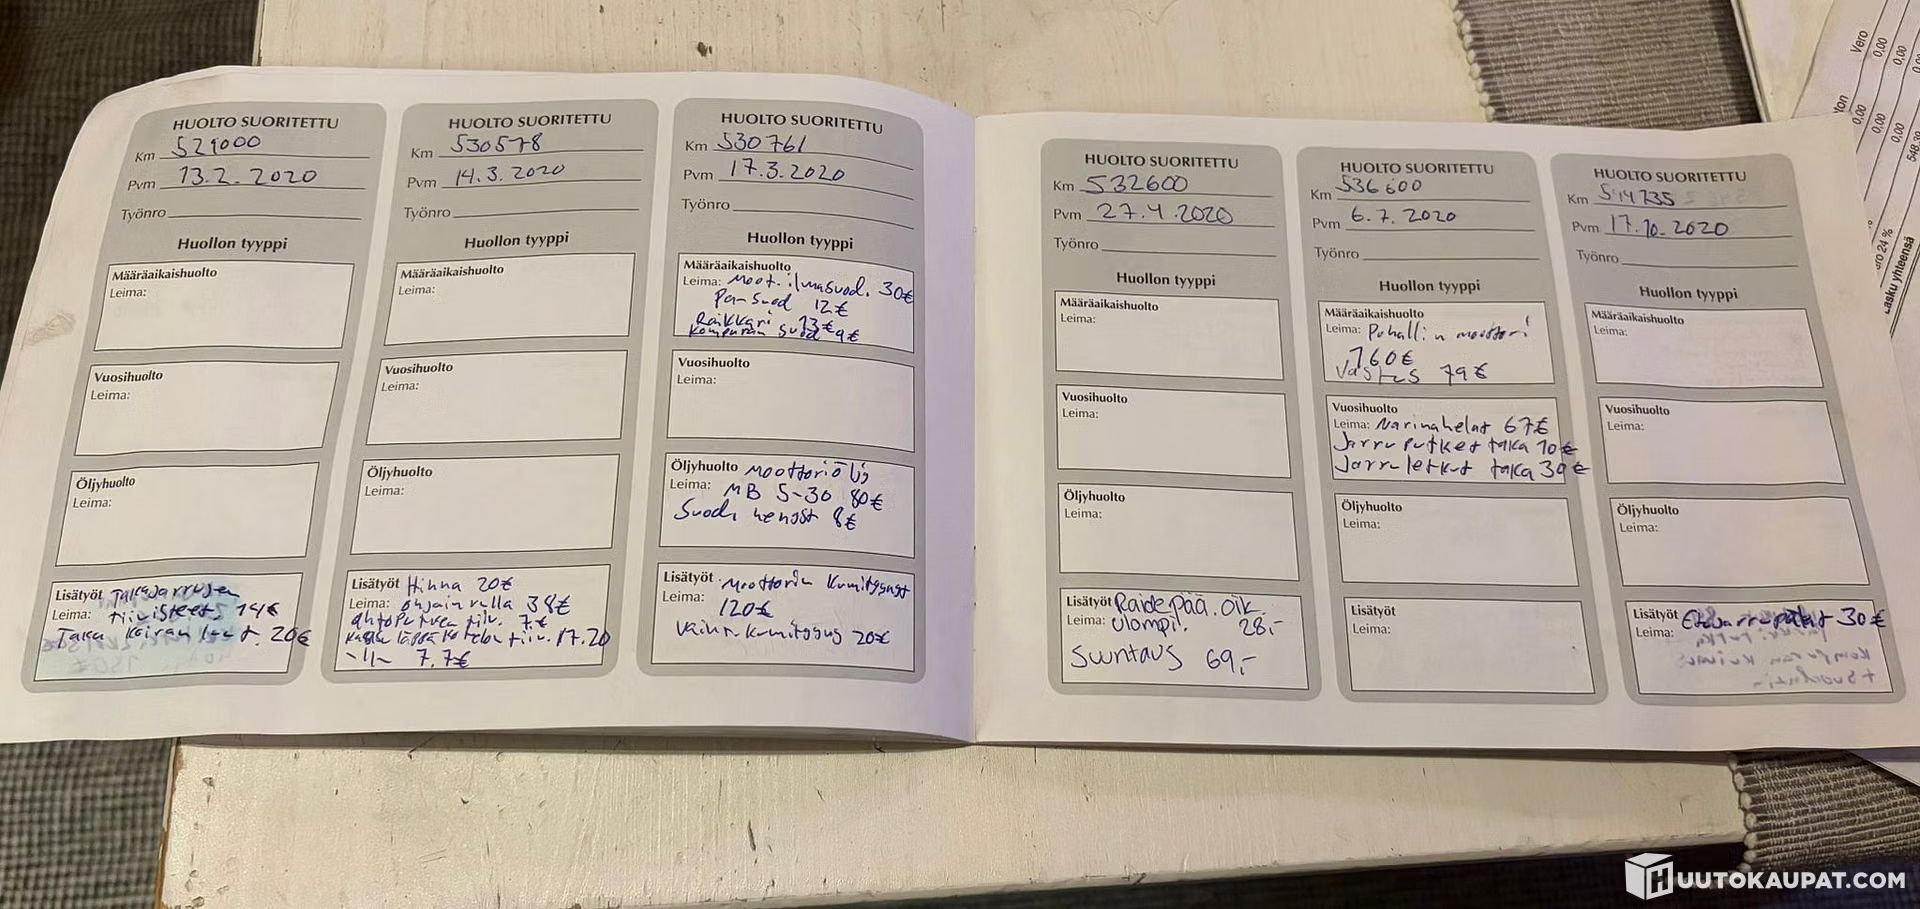 HUOLTO SUORITETTU
Km 529000
Pvm 13.2.2020
Työnro
Huollon tyyppi
Määräaikaishuolto
Leima:
Vuosihuolto
Leima:
Öljyhuolto
Leima:
Lisätyöt Takajarrujen
Leima: tiivisteet 14€
Taka koiran luut. 20€
HUOLTO SUORITETTU
Km 530578
Pvm 14.3.2020
Työnro
Huollon tyyppi
Määräaikaishuolto
Leima:
Vuosihuolto
Leima:
Öljyhuolto
Leima:
Lisätyöt Hihna 20€
Leima: ohjainrulla 38€
ahtoputken tiiv. 7€
tiiv. 17.20
-11- 7.7€
HUOLTO SUORITETTU
Km 530761
Pvm 17.3.2020
Työnro
Huollon tyyppi
Määräaikaishuolto
Leima: Moot. ilmasuod. 30€
Pa-suod 12€
Raikkari 13€
suod 9€
Vuosihuolto
Leima:
Öljyhuolto Moottoriöljy
Leima: MB 5-30 80€
Suod. hengst 8€
Lisätyöt Moottorin kumityynyt
Leima: 120€
Vaiht. kumityyny 20€
HUOLTO SUORITETTU
Km 532600
Pvm 27.4.2020
Työnro
Huollon tyyppi
Määräaikaishuolto
Leima:
Vuosihuolto
Leima:
Öljyhuolto
Leima:
Lisätyöt Raidepää. oik.
Leima: ulompi. 28,-
Suuntaus 69,-
HUOLTO SUORITETTU
Km 536600
Pvm 6.7.2020
Työnro
Huollon tyyppi
Määräaikaishuolto
Leima: Puhallin moottori
160€
Vastus 79€
Vuosihuolto
Leima: Narinahelat 67€
Jarruputket taka 10€
Jarruletkut taka 39€
Öljyhuolto
Leima:
Lisätyöt
Leima:
HUOLTO SUORITETTU
Km 544735
Pvm 17.10.2020
Työnro
Huollon tyyppi
Määräaikaishuolto
Leima:
Vuosihuolto
Leima:
Öljyhuolto
Leima:
Lisätyöt Etujarrupalat 30€
Leima:
Vero
0,00
0,00
0,00
0,00
0,00
24 %
Lasku yhteensä
HUUTOKAUPAT.COM